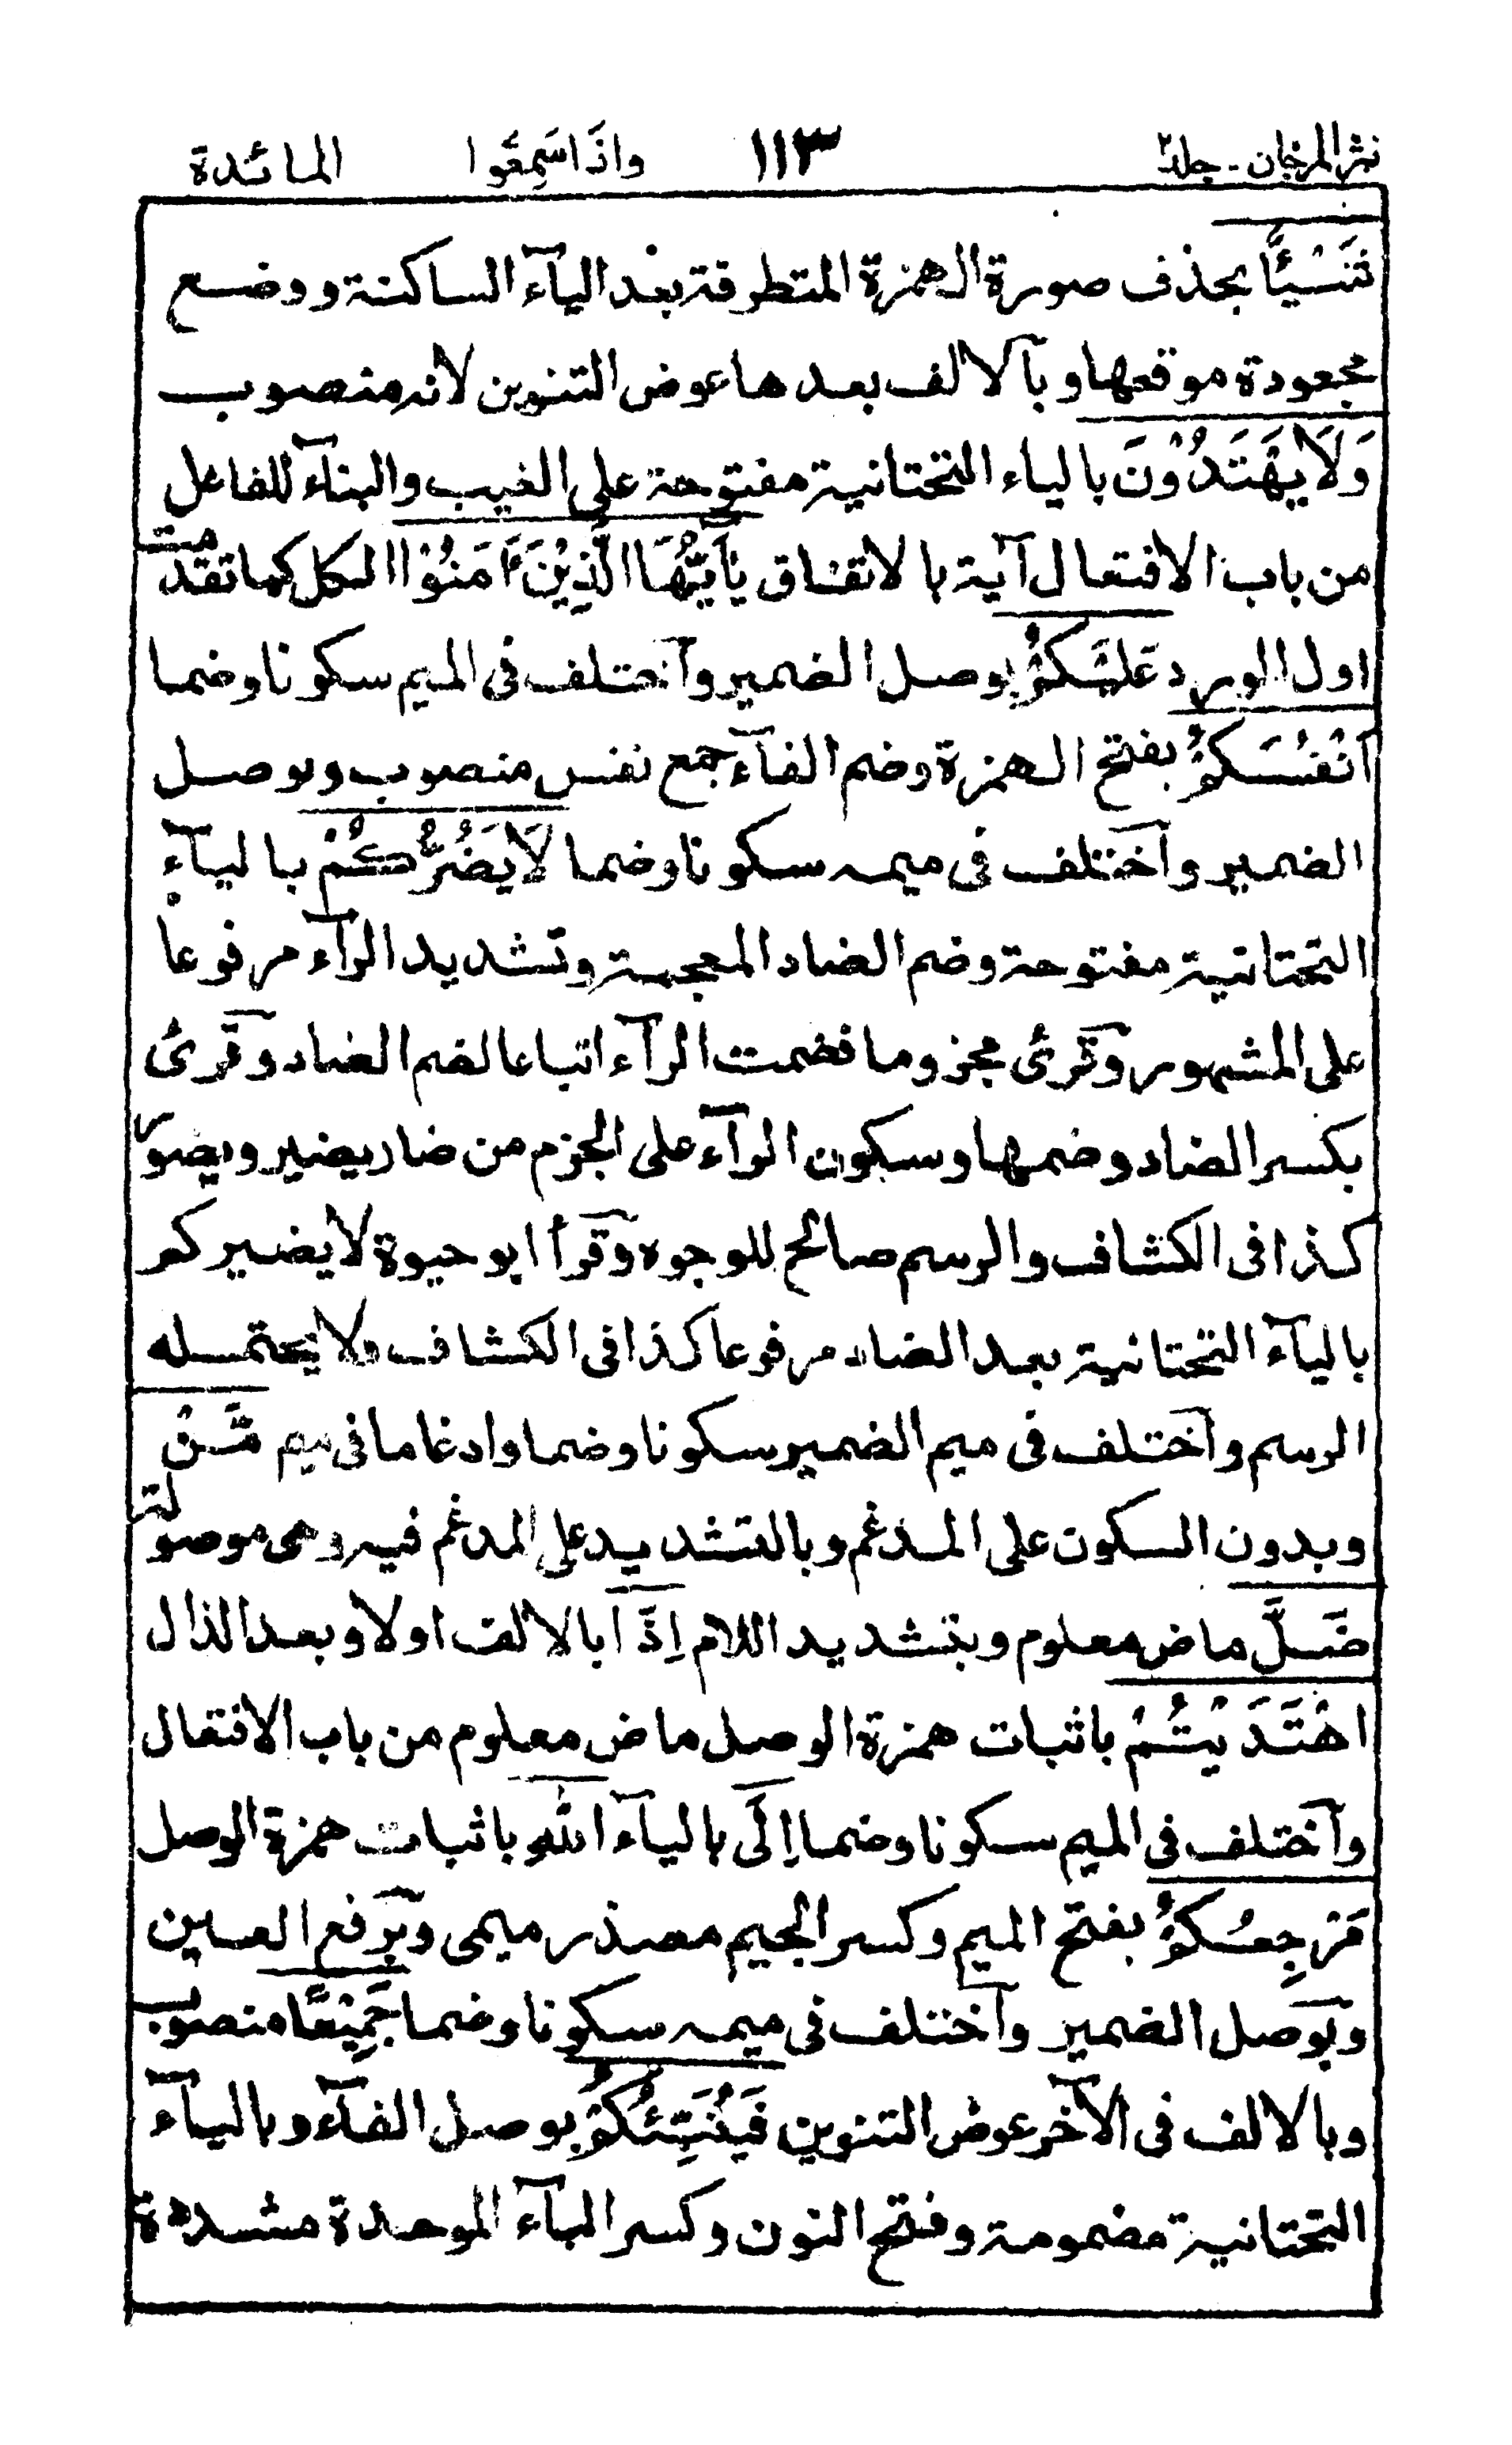 نثر المرجان - جلد٢ ١١٣ واذَا سَمِعُوا المائدة
شَيْـًٔا بحذف صورة الهمزة المتطرفة بعد اليآء الساكنة ووضع
مجعودة موقعها وبآلالف بعدها عوض التنوين لانه منصوب
وَلَا يَهْتَدُوْنَ بالياء التحتانية مفتوحة على الغيب والبنآء للفاعل
من باب الافتعال آية بالاتفاق يٰٓاَيُّهَا الَّذِيْنَ ءَامَنُوْا الكل كما تقدمت
اول الورد عَلَيْكُمْ بوصل الضمير وآختلف فى الميم سكونا وضما
اَنْفُسَكُمْ بفتح الهمزة وضم الفآء جمع نفس منصوب وبوصل
الضمير وآختلف فى ميمه سكونا وضما لَا يَضُرُّكُمْ باليآء
التحتانية مفتوحة وضم الضاد المعجمة وتشديد الرآء مرفوعا
على المشهور وقرئ مجزوما فضمت الرآء اتباعا لضم الضاد وقرئ
بكسر الضاد وضمها وسكون الرآء على الجزم من ضار يضير ويضور
كذا فى الكشاف والرسم صالح للوجوه وقرأ ابو حيوة لا يضيركم
باليآء التحتانية بعد الضاد مرفوعا كذا فى الكشاف ولا يحتمله
الرسم وآختلف فى ميم الضمير سكونا وضما وادغاما فى ميم مَّنْ
وبدون السكون على المدغم وبالتشديد على المدغم فيه وهى موصولة
ضَلَّ ماض معلوم وبتشديد اللام اِذَا بالالف اولا وبعد الذال
اهْتَدَيْتُمْ باثبات همزة الوصل ماض معلوم من باب الافتعال
وآختلف فى الميم سكونا وضما اِلَى باليآء اللهِ باثبات همزة الوصل
مَرْجِعُكُمْ بفتح الميم وكسر الجيم مصدر ميمى وبرفع العين
وبوصل الضمير وآختلف فى ميمه سكونا وضما جَمِيْعًا منصوب
وبالالف فى الآخر عوض التنوين فَيُنَبِّئُكُمْ بوصل الفآء وباليآء
التحتانية مضمومة وفتح النون وكسر البآء الموحدة مشددة